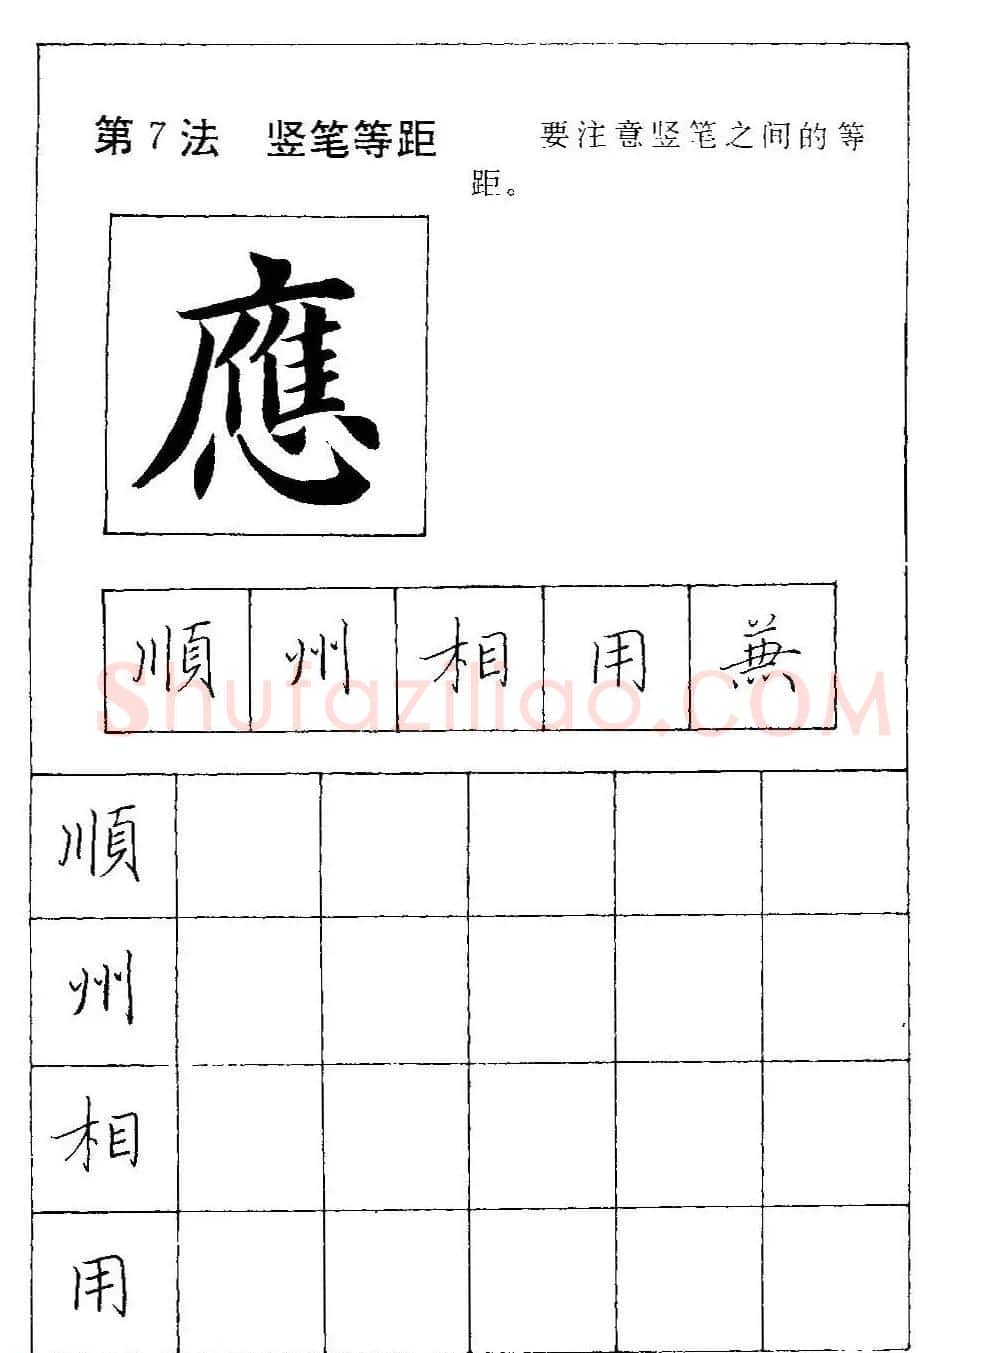 第7法 竖笔等距 要注意竖笔之间的等
距。
應
順 州 相 用 無
Shufaziliao.COM
順
州
相
用